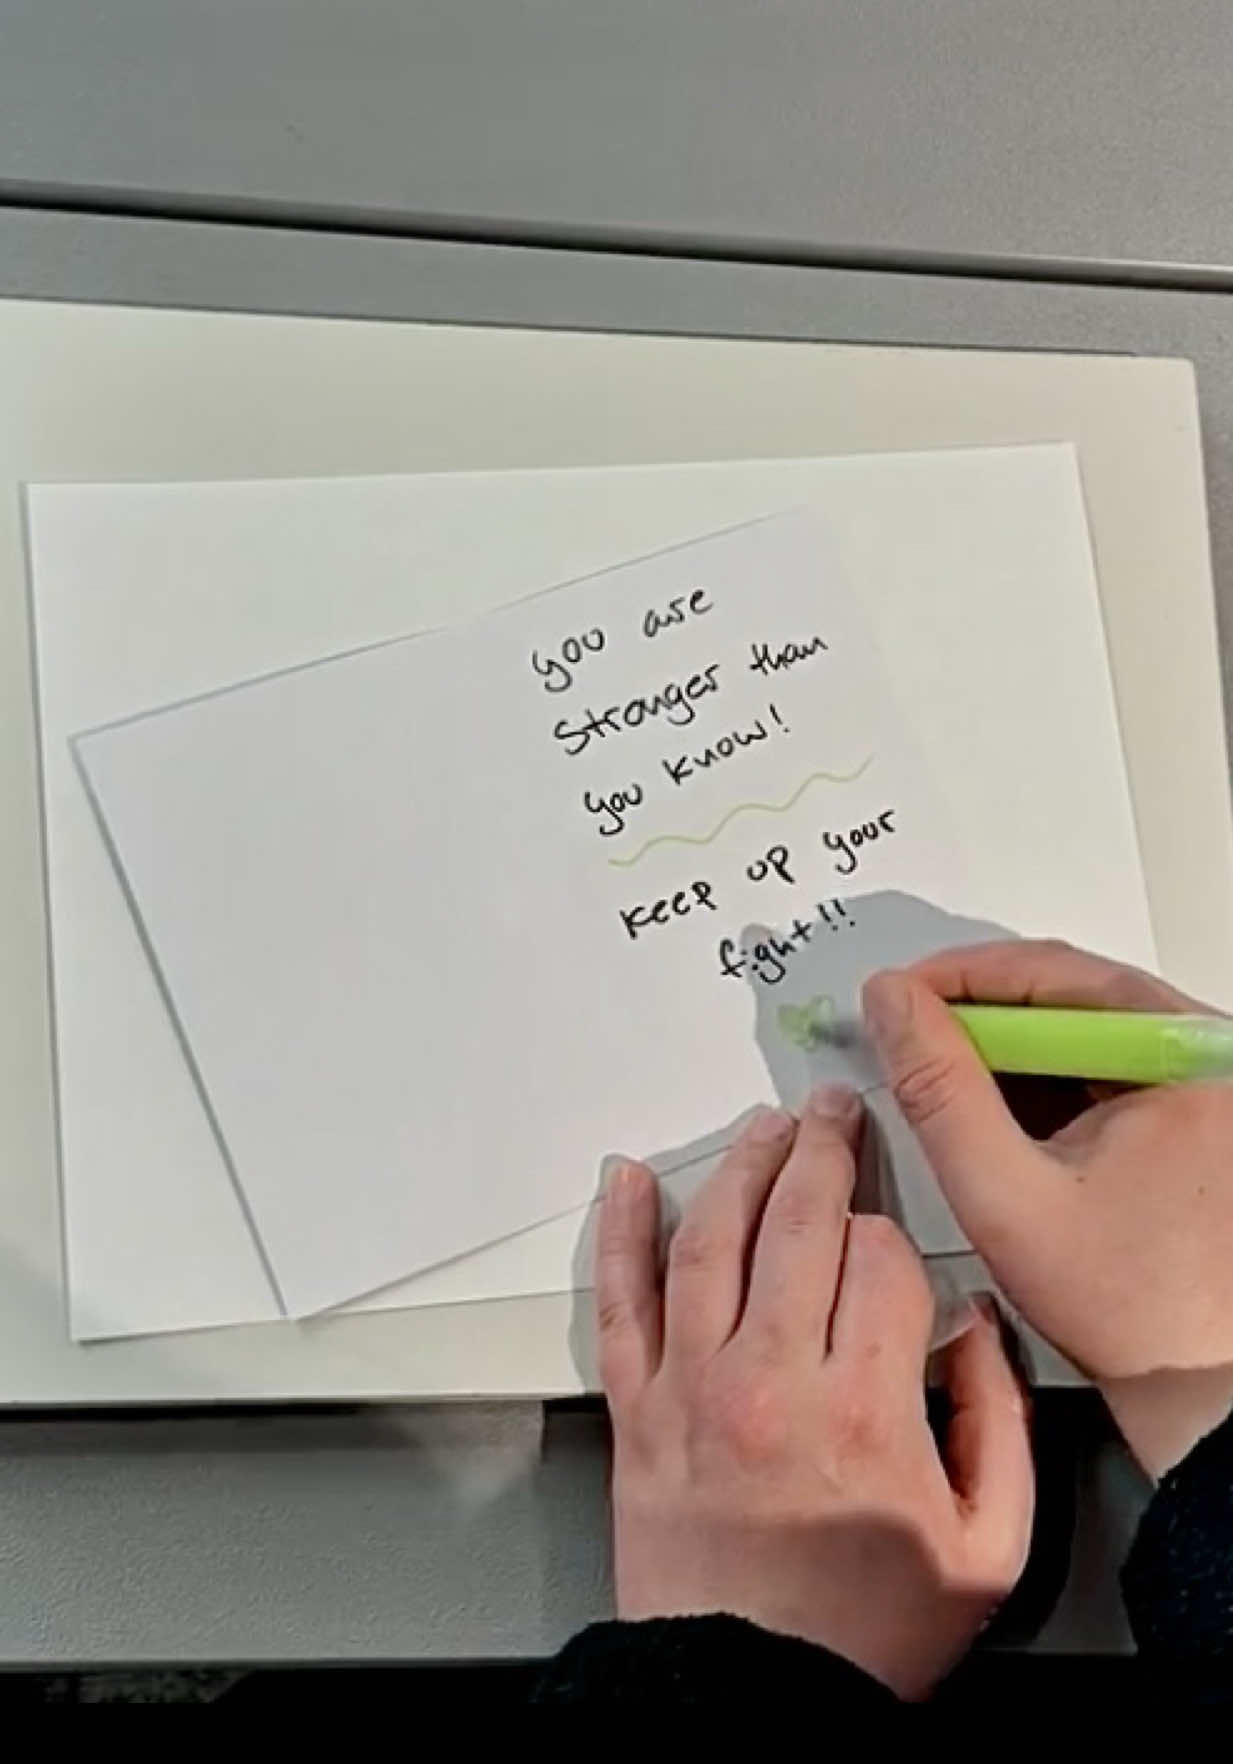 you are
stronger than
you know!
keep up your
fight!!